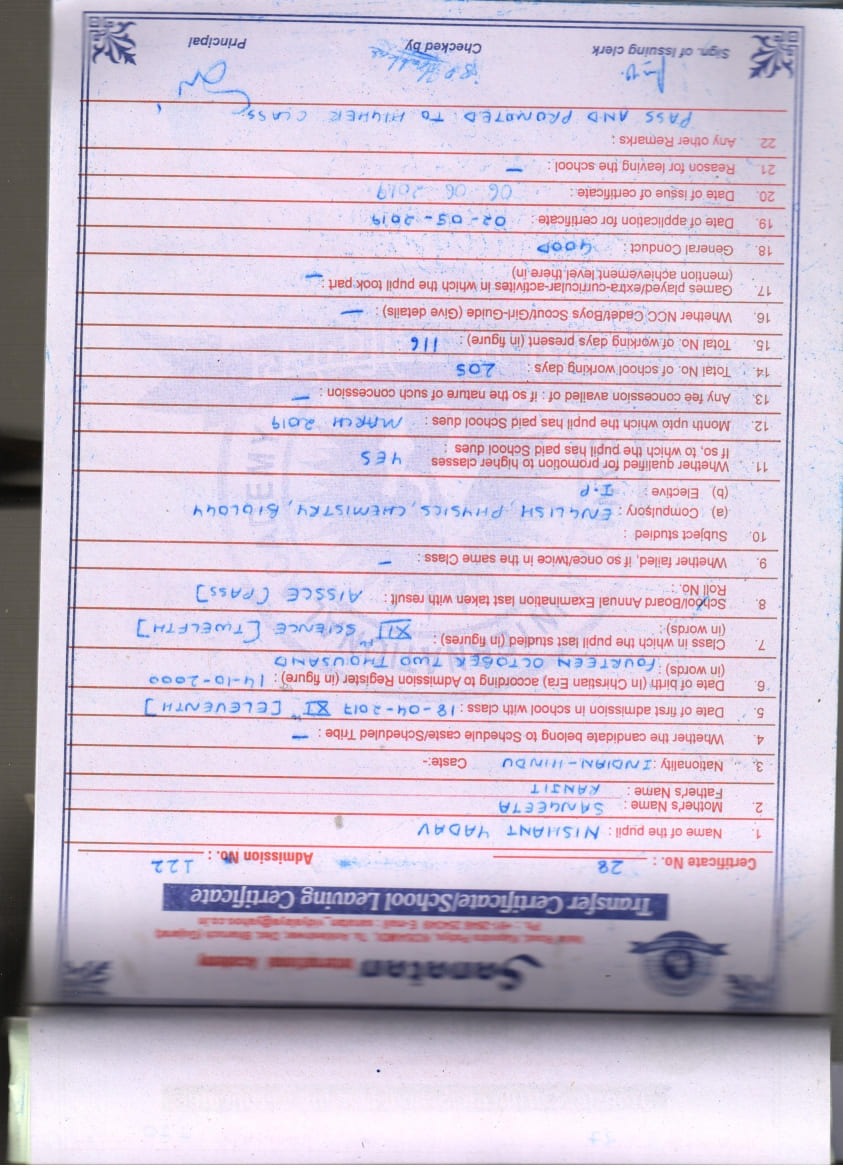 Sanatan
International Academy
Ph. : +91 2646 254049 E-mail : sanatan_vidyalaya@yahoo.co.in
Transfer Certificate/School Leaving Certificate
Certificate No. : 28 Admission No. : 122
1. Name of the pupil : NISHANT YADAV
2. Mother's Name : SANGEETA
Father's Name : RANJIT
3. Nationality : INDIAN-HINDU Caste:-
4. Whether the candidate belong to Schedule caste/Scheduled Tribe : —
5. Date of first admission in school with class : 18-04-2017 XI th [ELEVENTH]
6. Date of birth (In Christian Era) according to Admission Register (in figure) : 14-10-2000
(in words) : FOURTEEN OCTOBER TWO THOUSAND
7. Class in which the pupil last studied (in figures) : XII th SCIENCE [TWELFTH]
(in words) :
8. School/Board Annual Examination last taken with result : AISSCE [PASS]
Roll No. :
9. Whether failed, if so once/twice in the same Class : —
10. Subject studied :
(a) Compulsory : ENGLISH, PHYSICS, CHEMISTRY, BIOLOGY
(b) Elective : I.P
11. Whether qualified for promotion to higher classes YES
If so, to which the pupil has paid School dues :
12. Month upto which the pupil has paid School dues : MARCH 2019
13. Any fee concession availed of : if so the nature of such concession : —
14. Total No. of school working days : 205
15. Total No. of working days present (in figure) : 116
16. Whether NCC Cadet/Boys Scout/Girl-Guide (Give details) : —
17. Games played/extra-curricular-activites in which the pupil took part : —
(mention achievement level, there in)
18. General Conduct : GOOD
19. Date of application for certificate : 02-05-2019
20. Date of issue of certificate : 06 06 2019
21. Reason for leaving the school : —
22. Any other Remarks :
PASS AND PROMOTED TO HIGHER CLASS.
Sign. of Issuing clerk Checked by Principal